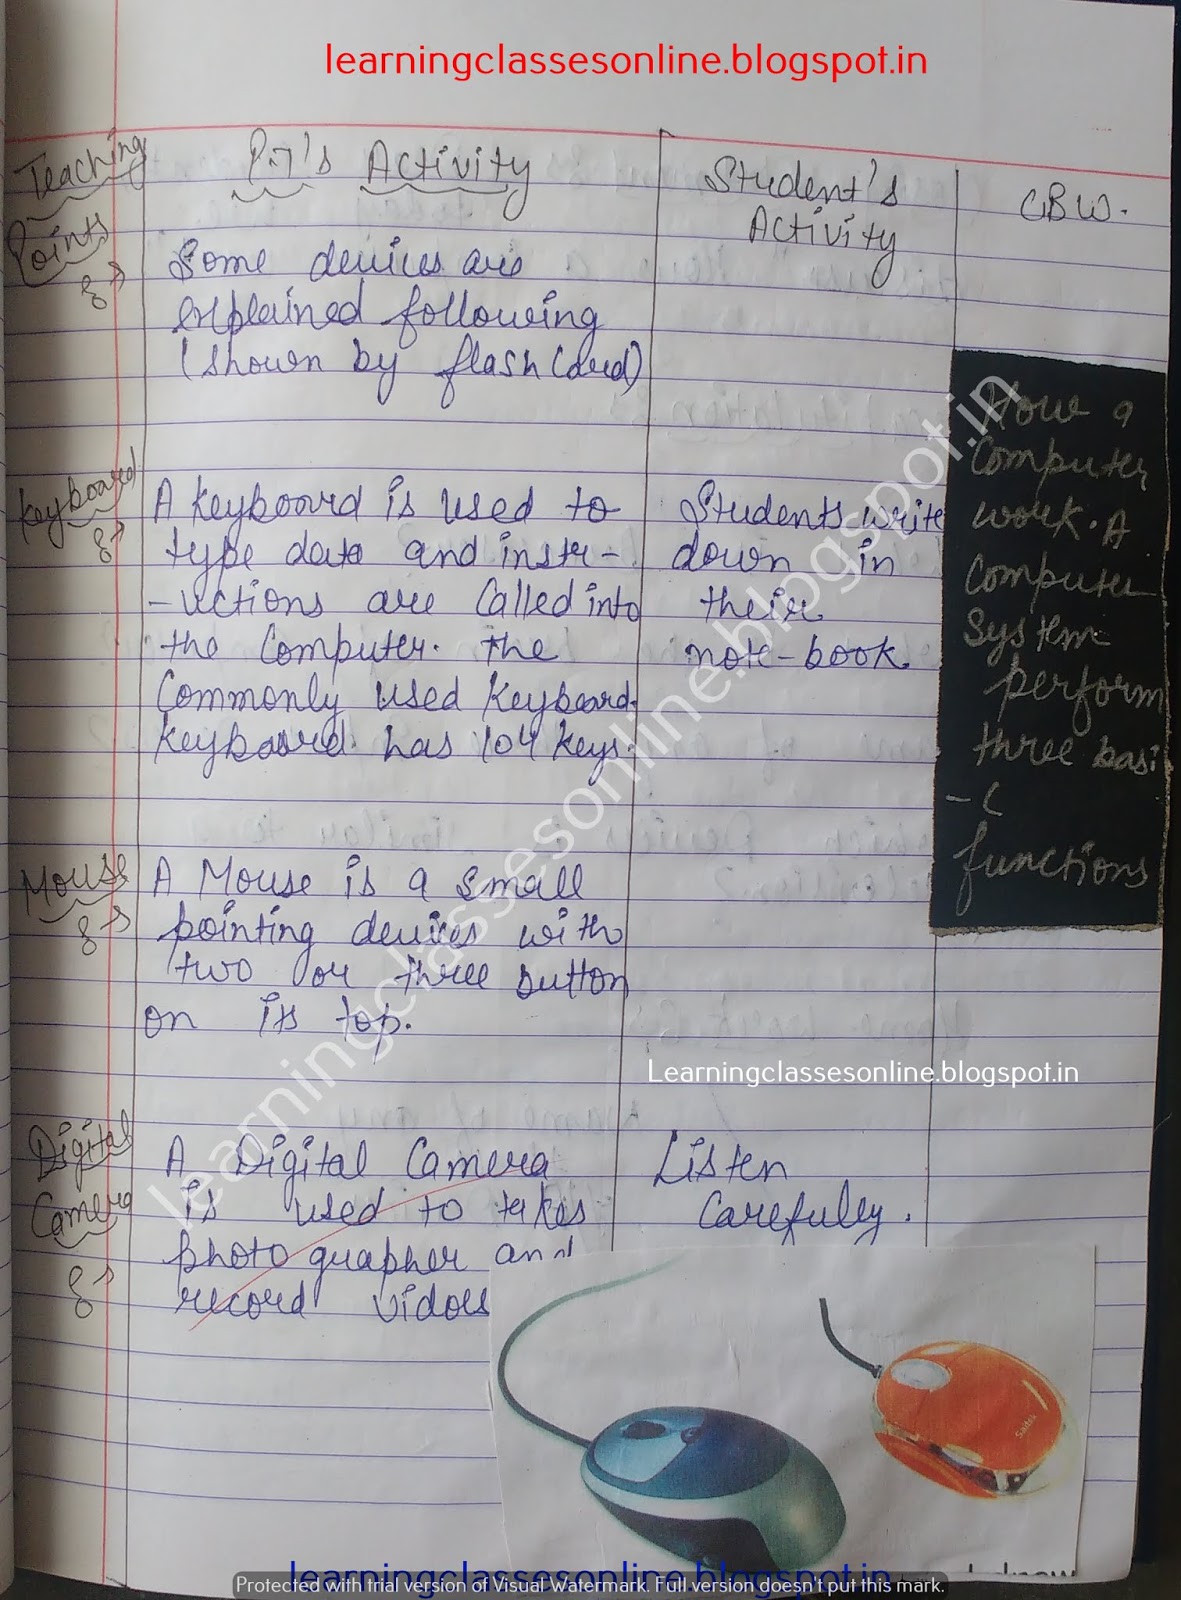 learningclassesonline.blogspot.in
Teaching
Points
P.T's Activity
Student's
Activity
CBW.
Some devices are
explained following
(shown by flash Card)
Keyboard
A Keyboard is used to
type data and instr-
-uctions are Called into
the Computer. The
Commonly used Keyboard.
Keyboard has 104 Keys.
Students write
down in
their
note-book.
How a
Computer
work. A
Computer
System
perform
three basi
-c
functions
Mouse
A Mouse is a small
pointing devices with
two or three button
on its top.
Learningclassesonline.blogspot.in
Digital
Camera
A Digital Camera
is used to takes
photo grapher and
record vidoes
Listen
Carefully.
Saitek
learningclassesonline.blogspot.in
learningclassesonline.blogspot.in
Protected with trial version of Visual Watermark. Full version doesn't put this mark.